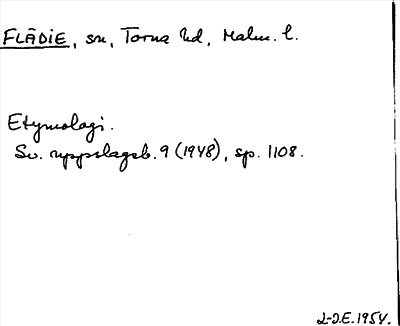 FLÄDIE, sn, Torna hd, Malm. l.
Etymologi.
Sv. uppslagsb. 9 (1948), sp. 1108.
L-J.E. 1954.